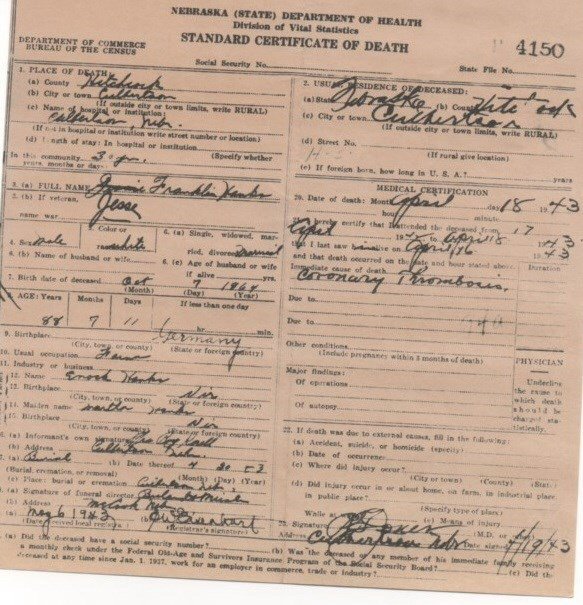 NEBRASKA (STATE) DEPARTMENT OF HEALTH
Division of Vital Statistics
DEPARTMENT OF COMMERCE
BUREAU OF THE CENSUS
STANDARD CERTIFICATE OF DEATH
4150
Social Security No.
State File No.
1. PLACE OF DEATH:
(a) County Hitchcock
(b) City or town Culbertson
(If outside city or town limits, write RURAL)
(c) Name of hospital or institution:
Culbertson, Neb.
(If not in hospital or institution write street number or location)
(d) Length of stay: In hospital or institution
(Specify whether
In this community 30 yrs.
years, months or days.
3. (a) FULL NAME Franklin
3. (b) If veteran,
name war Jesse
4. Sex male
Color or
white
6. (a) Single, widowed, mar-
ried, divorced
6. (b) Name of husband or wife
6. (c) Age of husband or wife
if alive yrs.
7. Birth date of deceased Oct 7 1864
(Month) (Day) (Year)
AGE: Years Months Days If less than one day
88 7 11 hr. min.
9. Birthplace Germany
(City, town, or county) (State or foreign country)
10. Usual occupation Farm
11. Industry or business
12. Name Enoch
12. Birthplace
(City, town, or county) (State or foreign country)
14. Maiden name
15. Birthplace
(City, town, or county) (State or foreign country)
(a) Informant's own signature
(b) Address Culbertson Nebr.
(a) Burial (b) Date thereof 4 20 53
(Burial, cremation, or removal) (Month) (Day) (Year)
(c) Place: burial or cremation Culbertson, Neb.
(a) Signature of funeral director
(b) Address McCook Neb
(a) May 6 1943 (b)
(Date received local registrar) (Registrar's signature)
2. USUAL RESIDENCE OF DECEASED:
(a) State Nebraska (b) County
(c) City or town Culbertson
(If outside city or town limits, write RURAL)
(d) Street No.
(If rural give location)
(e) If foreign born, how long in U. S. A.? years
MEDICAL CERTIFICATION
20. Date of death: Month April day 18 1943
hour minute
I hereby certify that I attended the deceased from 17
April 1943 to April 18 1943
that I last saw h alive on April 16 1943
and that death occurred on the date and hour stated above.
Duration
Immediate cause of death
Coronary Thrombosis.
Due to
Due to
Other conditions
(Include pregnancy within 3 months of death)
PHYSICIAN
Major findings:
Of operations
Of autopsy
Underline
the cause
to which
death
should be
charged sta-
tistically.
22. If death was due to external causes, fill in the following:
(a) Accident, suicide, or homicide (specify)
(b) Date of occurrence
(c) Where did injury occur?
(City or town) (County) (State)
(d) Did injury occur in or about home, on farm, in industrial place
in public place?
(Specify type of place)
While at (e) Means of injury
23. Signature M.D. or
Culbertson Nebr Date signed 4/19/43
(a) Did the deceased have a social security number? (b) Was the deceased or any member of his immediate family receiving
a monthly check under the Federal Old-Age and Survivors Insurance Program of the Social Security Board? (c) Did the
deceased at any time since Jan. 1, 1937, work for an employer in commerce, trade or industry?